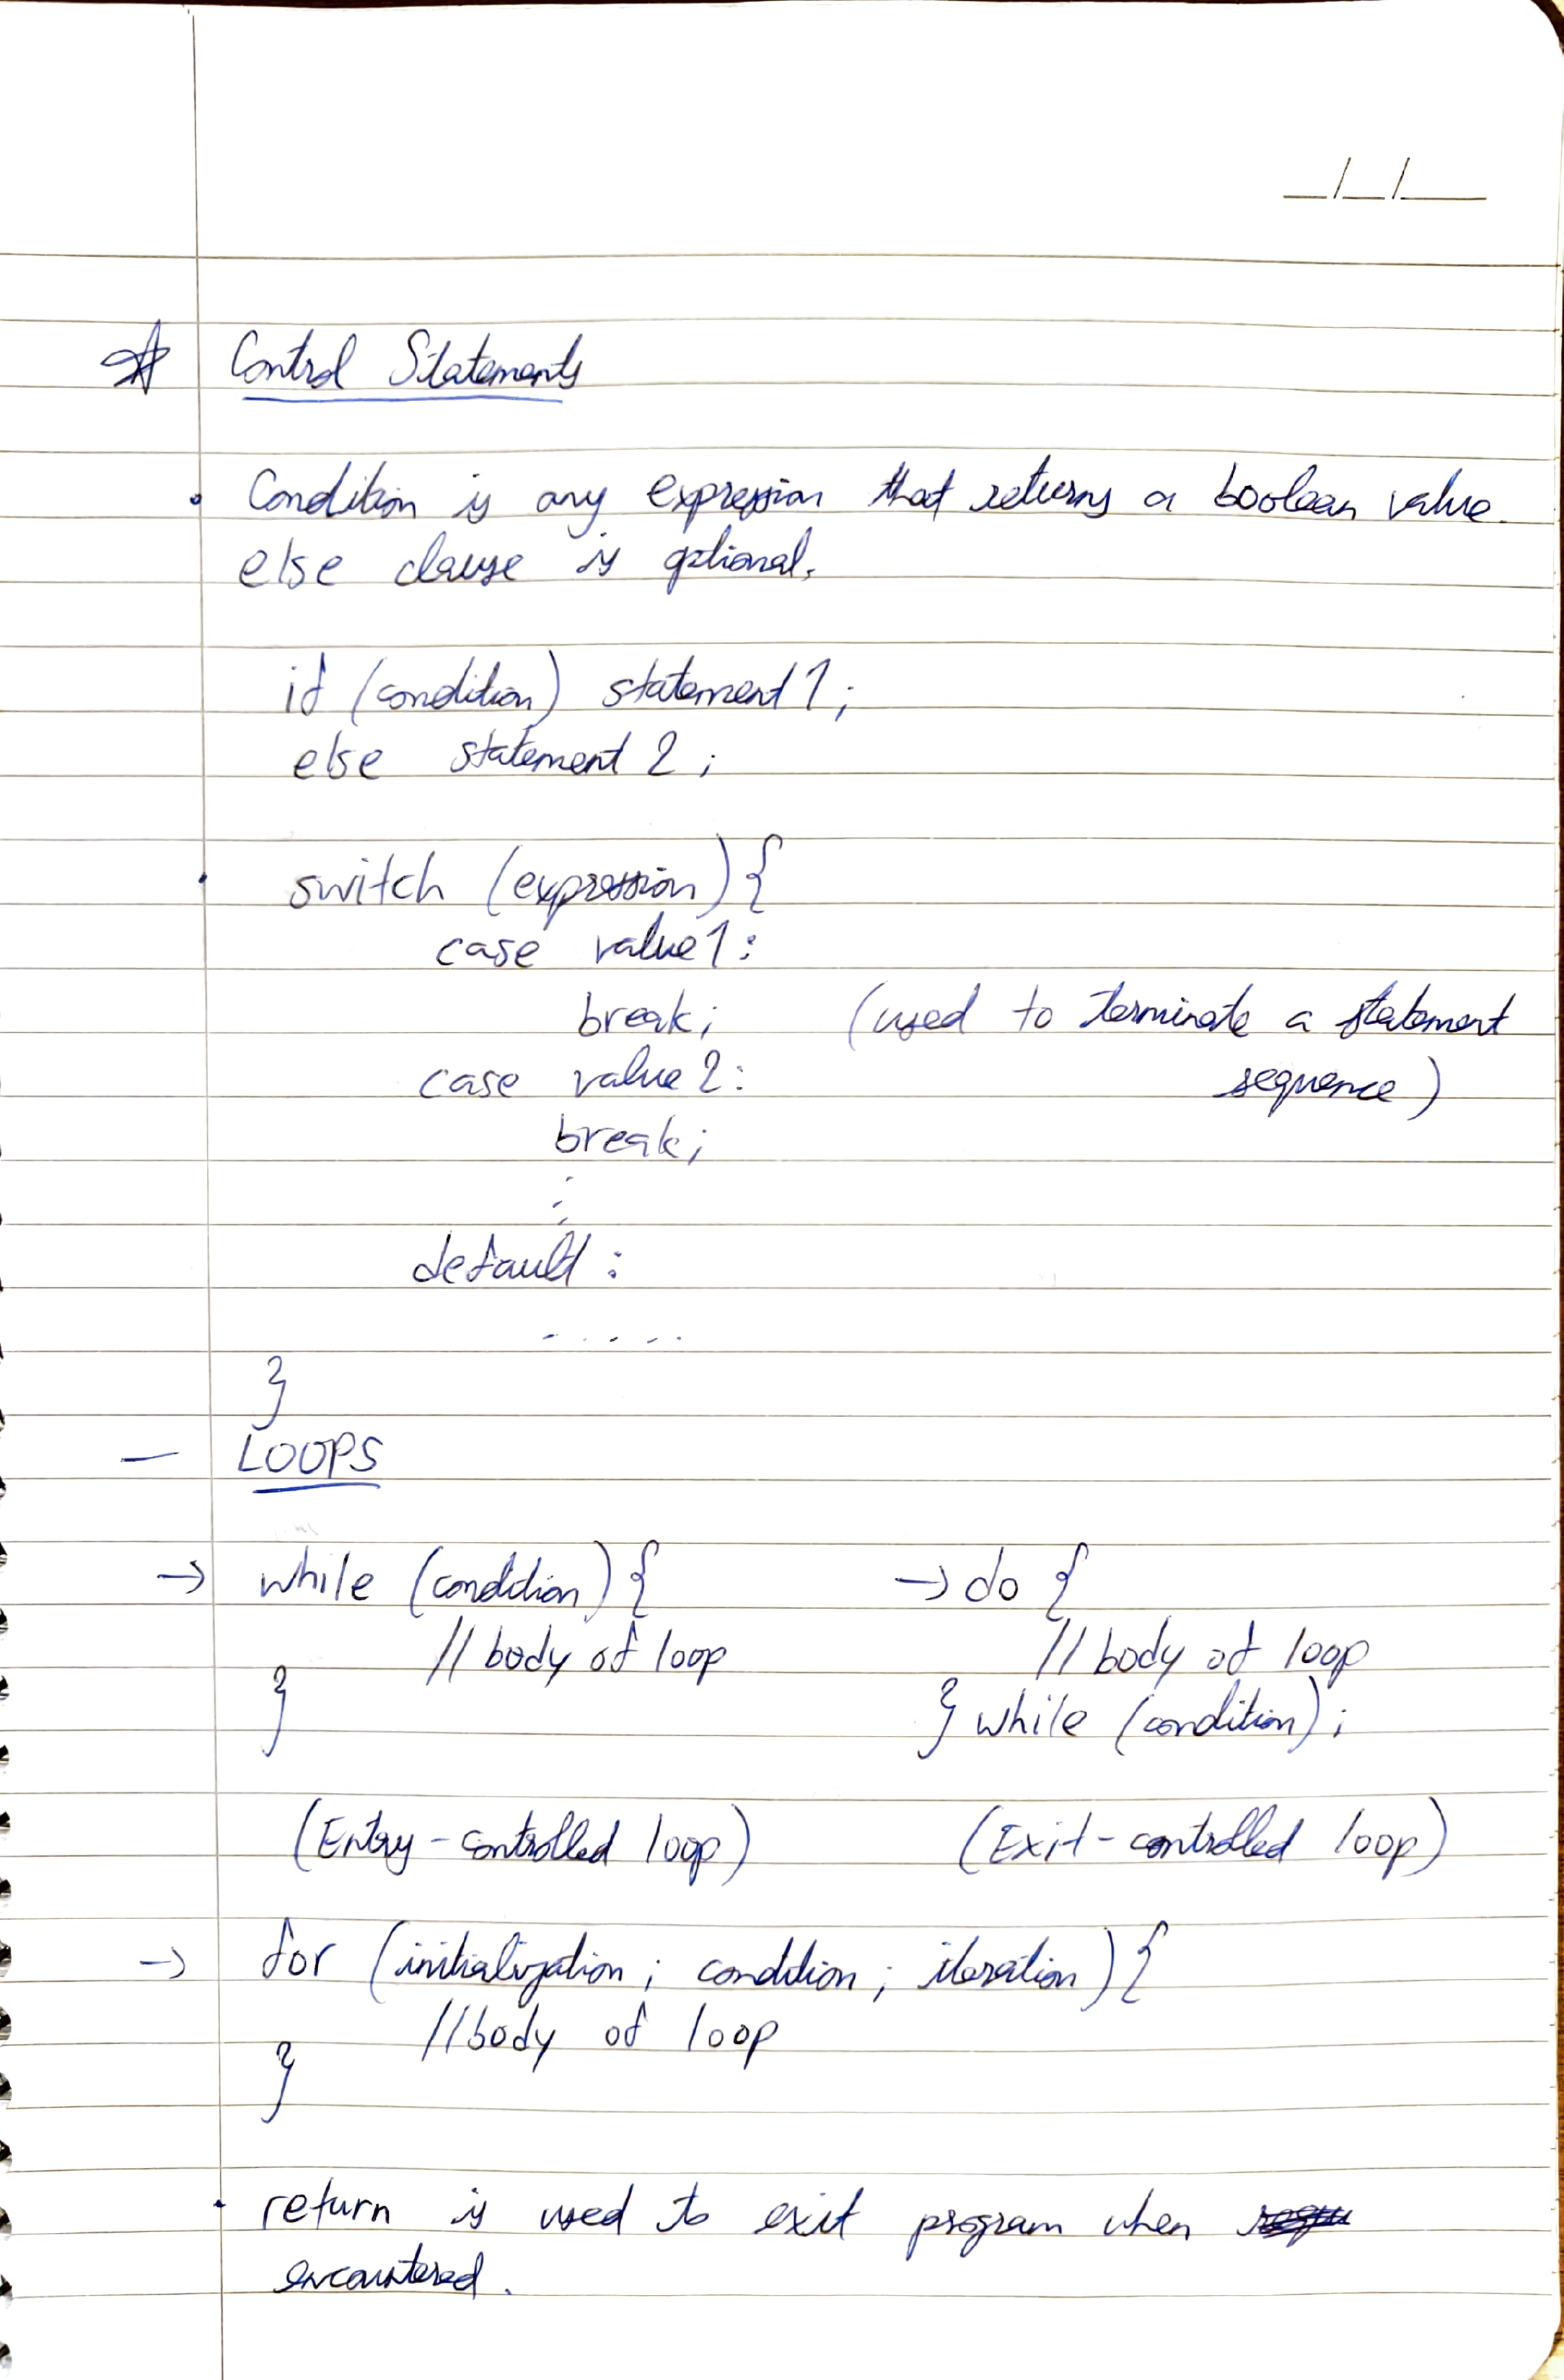 _/_/__
Control Statements
• Condition is any expression that returns a boolean value.
else clause is optional.
if (condition) statement 1;
else statement 2;
• switch (expression) {
case value 1:
break; (used to terminate a statement
sequence)
case value 2:
break;
⋮
default:
.....
}
— LOOPS
→ while (condition) { → do {
// body of loop // body of loop
} } while (condition);
(Entry-controlled loop) (Exit-controlled loop)
→ for (initialization; condition; iteration) {
// body of loop
}
• return is used to exit program when
encountered.